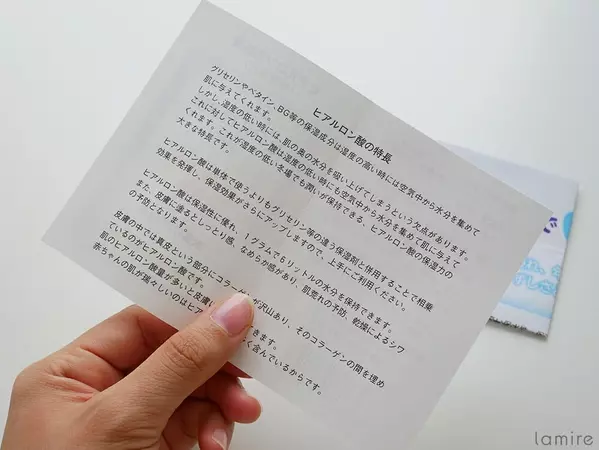 ヒアルロン酸の特長
グリセリンやベタイン、BG等の保湿成分は湿度の高い時には空気中から水分を集めて
肌に与えてくれます。
しかし、湿度の低い時には、肌の奥の水分を吸い上げてしまうという欠点があります。
これに対してヒアルロン酸は湿度の低い時にも空気中から水分を集めて肌に与えて
くれます。これが湿度の低い冬場でも潤いが保持できる、ヒアルロン酸の保湿力の
大きな特長です。
ヒアルロン酸は単体で使うよりもグリセリン等の違う保湿剤と併用することで相乗
効果を発揮し、保湿効果がさらにアップしますので、上手にご利用ください。
ヒアルロン酸は保湿性に優れ、1グラムで6リットルの水分を保持できます。
また、皮膚に塗るとしっとり感、なめらか感があり、肌荒れの予防、乾燥によるシワ
の予防となります。
皮膚の中では真皮という部分にコラーゲンが沢山あり、そのコラーゲンの間を埋め
ているのがヒアルロン酸です。
肌のヒアルロン酸量が多いと皮膚 きます。
赤ちゃんの肌が瑞々しいのはヒア く含んでいるからです。
lamire